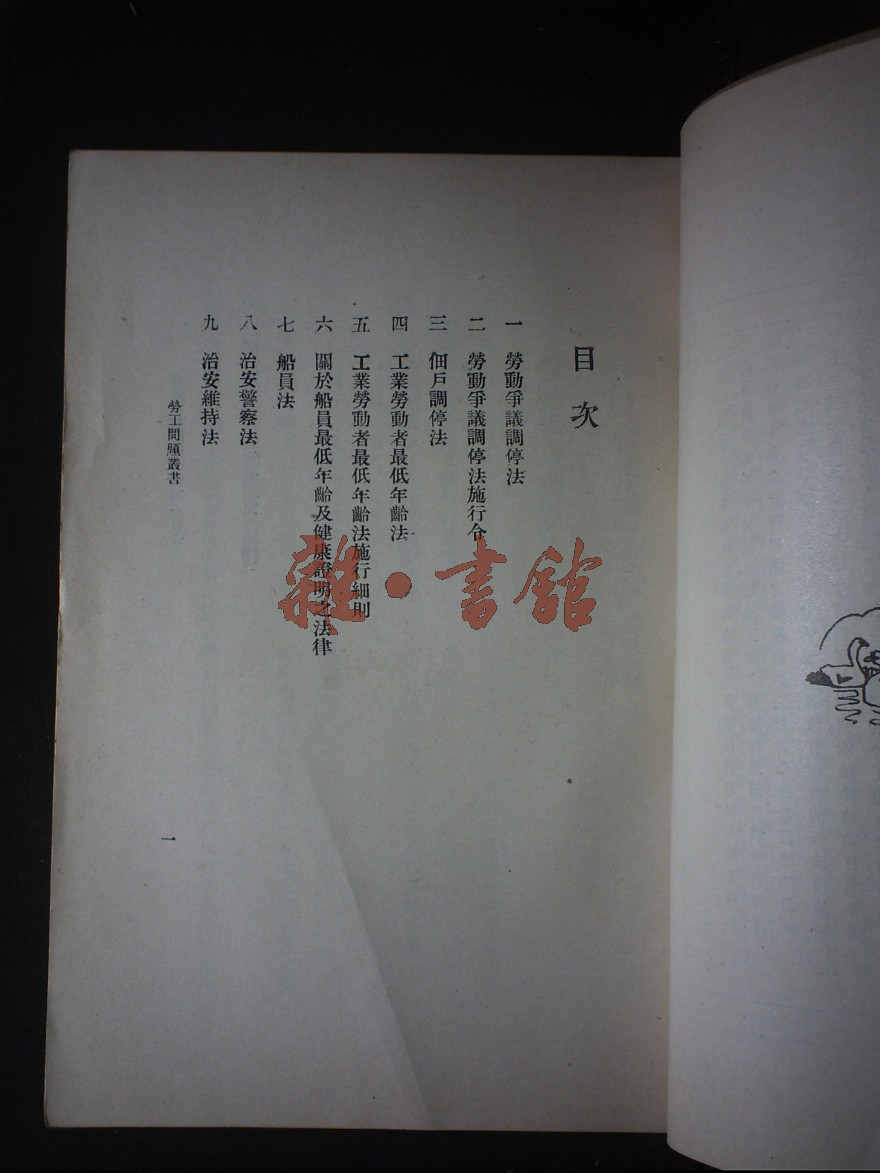 目次
一 勞動爭議調停法
二 勞動爭議調停法施行令
三 佃戶調停法
四 工業勞動者最低年齡法
五 工業勞動者最低年齡法施行細則
六 關於船員最低年齡及健康證明之法律
七 船員法
八 治安警察法
九 治安維持法
勞工問題叢書
一
雜·書館